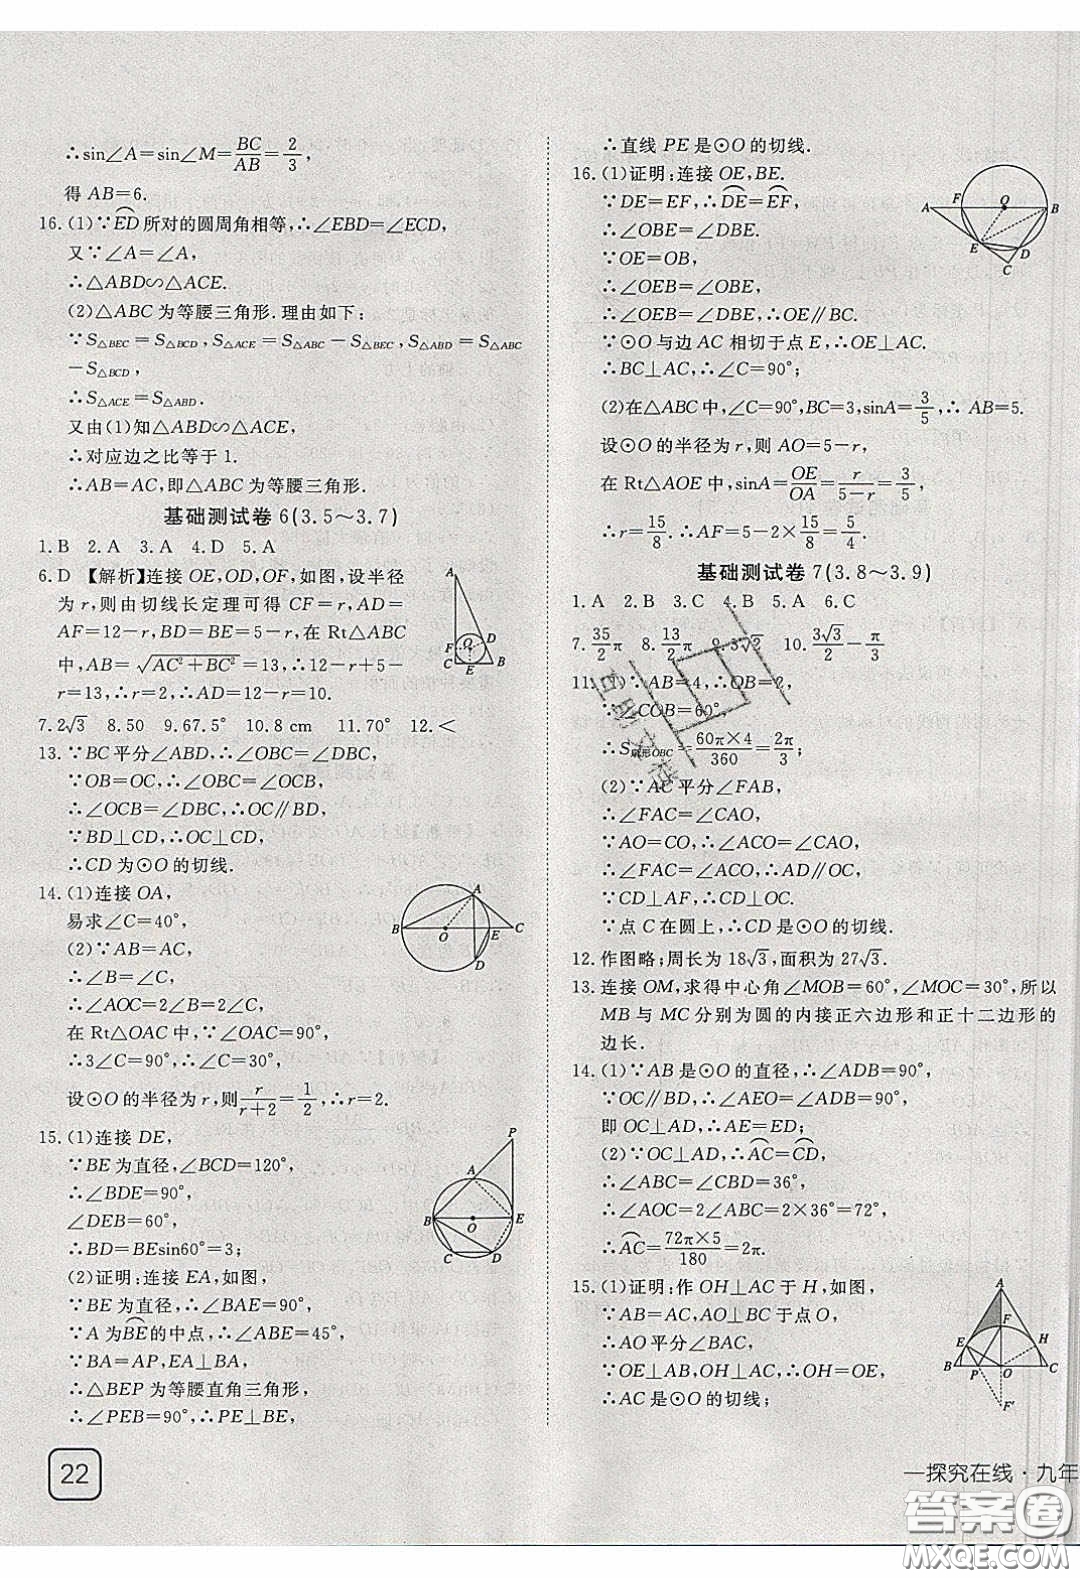 ∴sin∠A=sin∠M=BC/AB=2/3,
得 AB=6.
16.(1)∵ED⌒所对的圆周角相等,∴∠EBD=∠ECD,
又∵∠A=∠A,
∴△ABD∽△ACE.
(2)△ABC 为等腰三角形.理由如下:
∵S△BEC=S△BCD,S△ACE=S△ABC-S△BEC,S△ABD=S△ABC
-S△BCD,
∴S△ACE=S△ABD.
又由(1)知△ABD∽△ACE,
∴对应边之比等于 1.
∴AB=AC,即△ABC 为等腰三角形.
基础测试卷 6(3.5～3.7)
1.B 2.A 3.A 4.D 5.A
6.D 【解析】连接 OE,OD,OF,如图,设半径
为 r,则由切线长定理可得 CF=r,AD=
AF=12-r,BD=BE=5-r,在 Rt△ABC
中,AB=√(AC²+BC²)=13,∴12-r+5-
r=13,∴r=2,∴AD=12-r=10.
7.2√3 8.50 9.67.5° 10.8 cm 11.70° 12.<
13.∵BC 平分∠ABD,∴∠OBC=∠DBC,
∵OB=OC,∴∠OBC=∠OCB,
∴∠OCB=∠DBC,∴OC∥BD,
∵BD⊥CD,∴OC⊥CD,
∴CD 为⊙O 的切线.
14.(1)连接 OA,
易求∠C=40°,
(2)∵AB=AC,
∴∠B=∠C,
∴∠AOC=2∠B=2∠C,
在 Rt△OAC 中,∵∠OAC=90°,
∴3∠C=90°,∴∠C=30°,
设⊙O 的半径为 r,则r/(r+2)=1/2,∴r=2.
15.(1)连接 DE,
∵BE 为直径,∠BCD=120°,
∴∠BDE=90°,
∠DEB=60°,
∴BD=BEsin60°=3;
(2)证明:连接 EA,如图,
∵BE 为直径,∴∠BAE=90°,
∵A 为BE⌒的中点,∴∠ABE=45°,
∵BA=AP,EA⊥BA,
∴△BEP 为等腰直角三角形,
∴∠PEB=90°,∴PE⊥BE,
22
∴直线 PE 是⊙O 的切线.
16.(1)证明:连接 OE,BE.
∵DE=EF,∴DE⌒=EF⌒,
∴∠OBE=∠DBE.
∵OE=OB,
∴∠OEB=∠OBE,
∴∠OEB=∠DBE,∴OE∥BC.
∵⊙O 与边 AC 相切于点 E,∴OE⊥AC.
∴BC⊥AC,∴∠C=90°;
(2)在△ABC 中,∠C=90°,BC=3,sinA=3/5,∴AB=5.
设⊙O 的半径为 r,则 AO=5-r,
在 Rt△AOE 中,sinA=OE/OA=r/(5-r)=3/5,
∴r=15/8.∴AF=5-2×15/8=5/4.
基础测试卷 7(3.8～3.9)
1.A 2.B 3.C 4.B 5.A 6.C
7.35/2π 8.13/2π 9.3√3 10.3√3/2-π/3
11.(1)∵AB=4,∴OB=2,
∵∠COB=60°,
∴S扇形OBC=60π×4/360=2π/3;
(2)∵AC 平分∠FAB,
∴∠FAC=∠CAO,
∵AO=CO,∴∠ACO=∠CAO,
∴∠FAC=∠ACO,∴AF∥OC,
∵CD⊥AF,∴CD⊥OC.
∵点 C 在圆上,∴CD 是⊙O 的切线.
12.作图略;周长为 18√3,面积为 27√3.
13.连接 OM,求得中心角∠MOB=60°,∠MOC=30°,所以
MB 与 MC 分别为圆的内接正六边形和正十二边形的
边长.
14.(1)∵AB 是⊙O 的直径,∴∠ADB=90°,
∵OC∥BD,∴∠AEO=∠ADB=90°,
即 OC⊥AD,∴AE=ED;
(2)∵OC⊥AD,∴AC⌒=CD⌒,
∴∠ABC=∠CBD=36°,
∴∠AOC=2∠ABC=2×36°=72°,
∴AC⌒=72π×5/180=2π.
15.(1)证明:作 OH⊥AC 于 H,如图,
∵AB=AC,AO⊥BC 于点 O,
∴AO 平分∠BAC,
∵OE⊥AB,OH⊥AC,∴OH=OE,
∴AC 是⊙O 的切线;
—探究在线·九年
答案圈
MXQE.COM